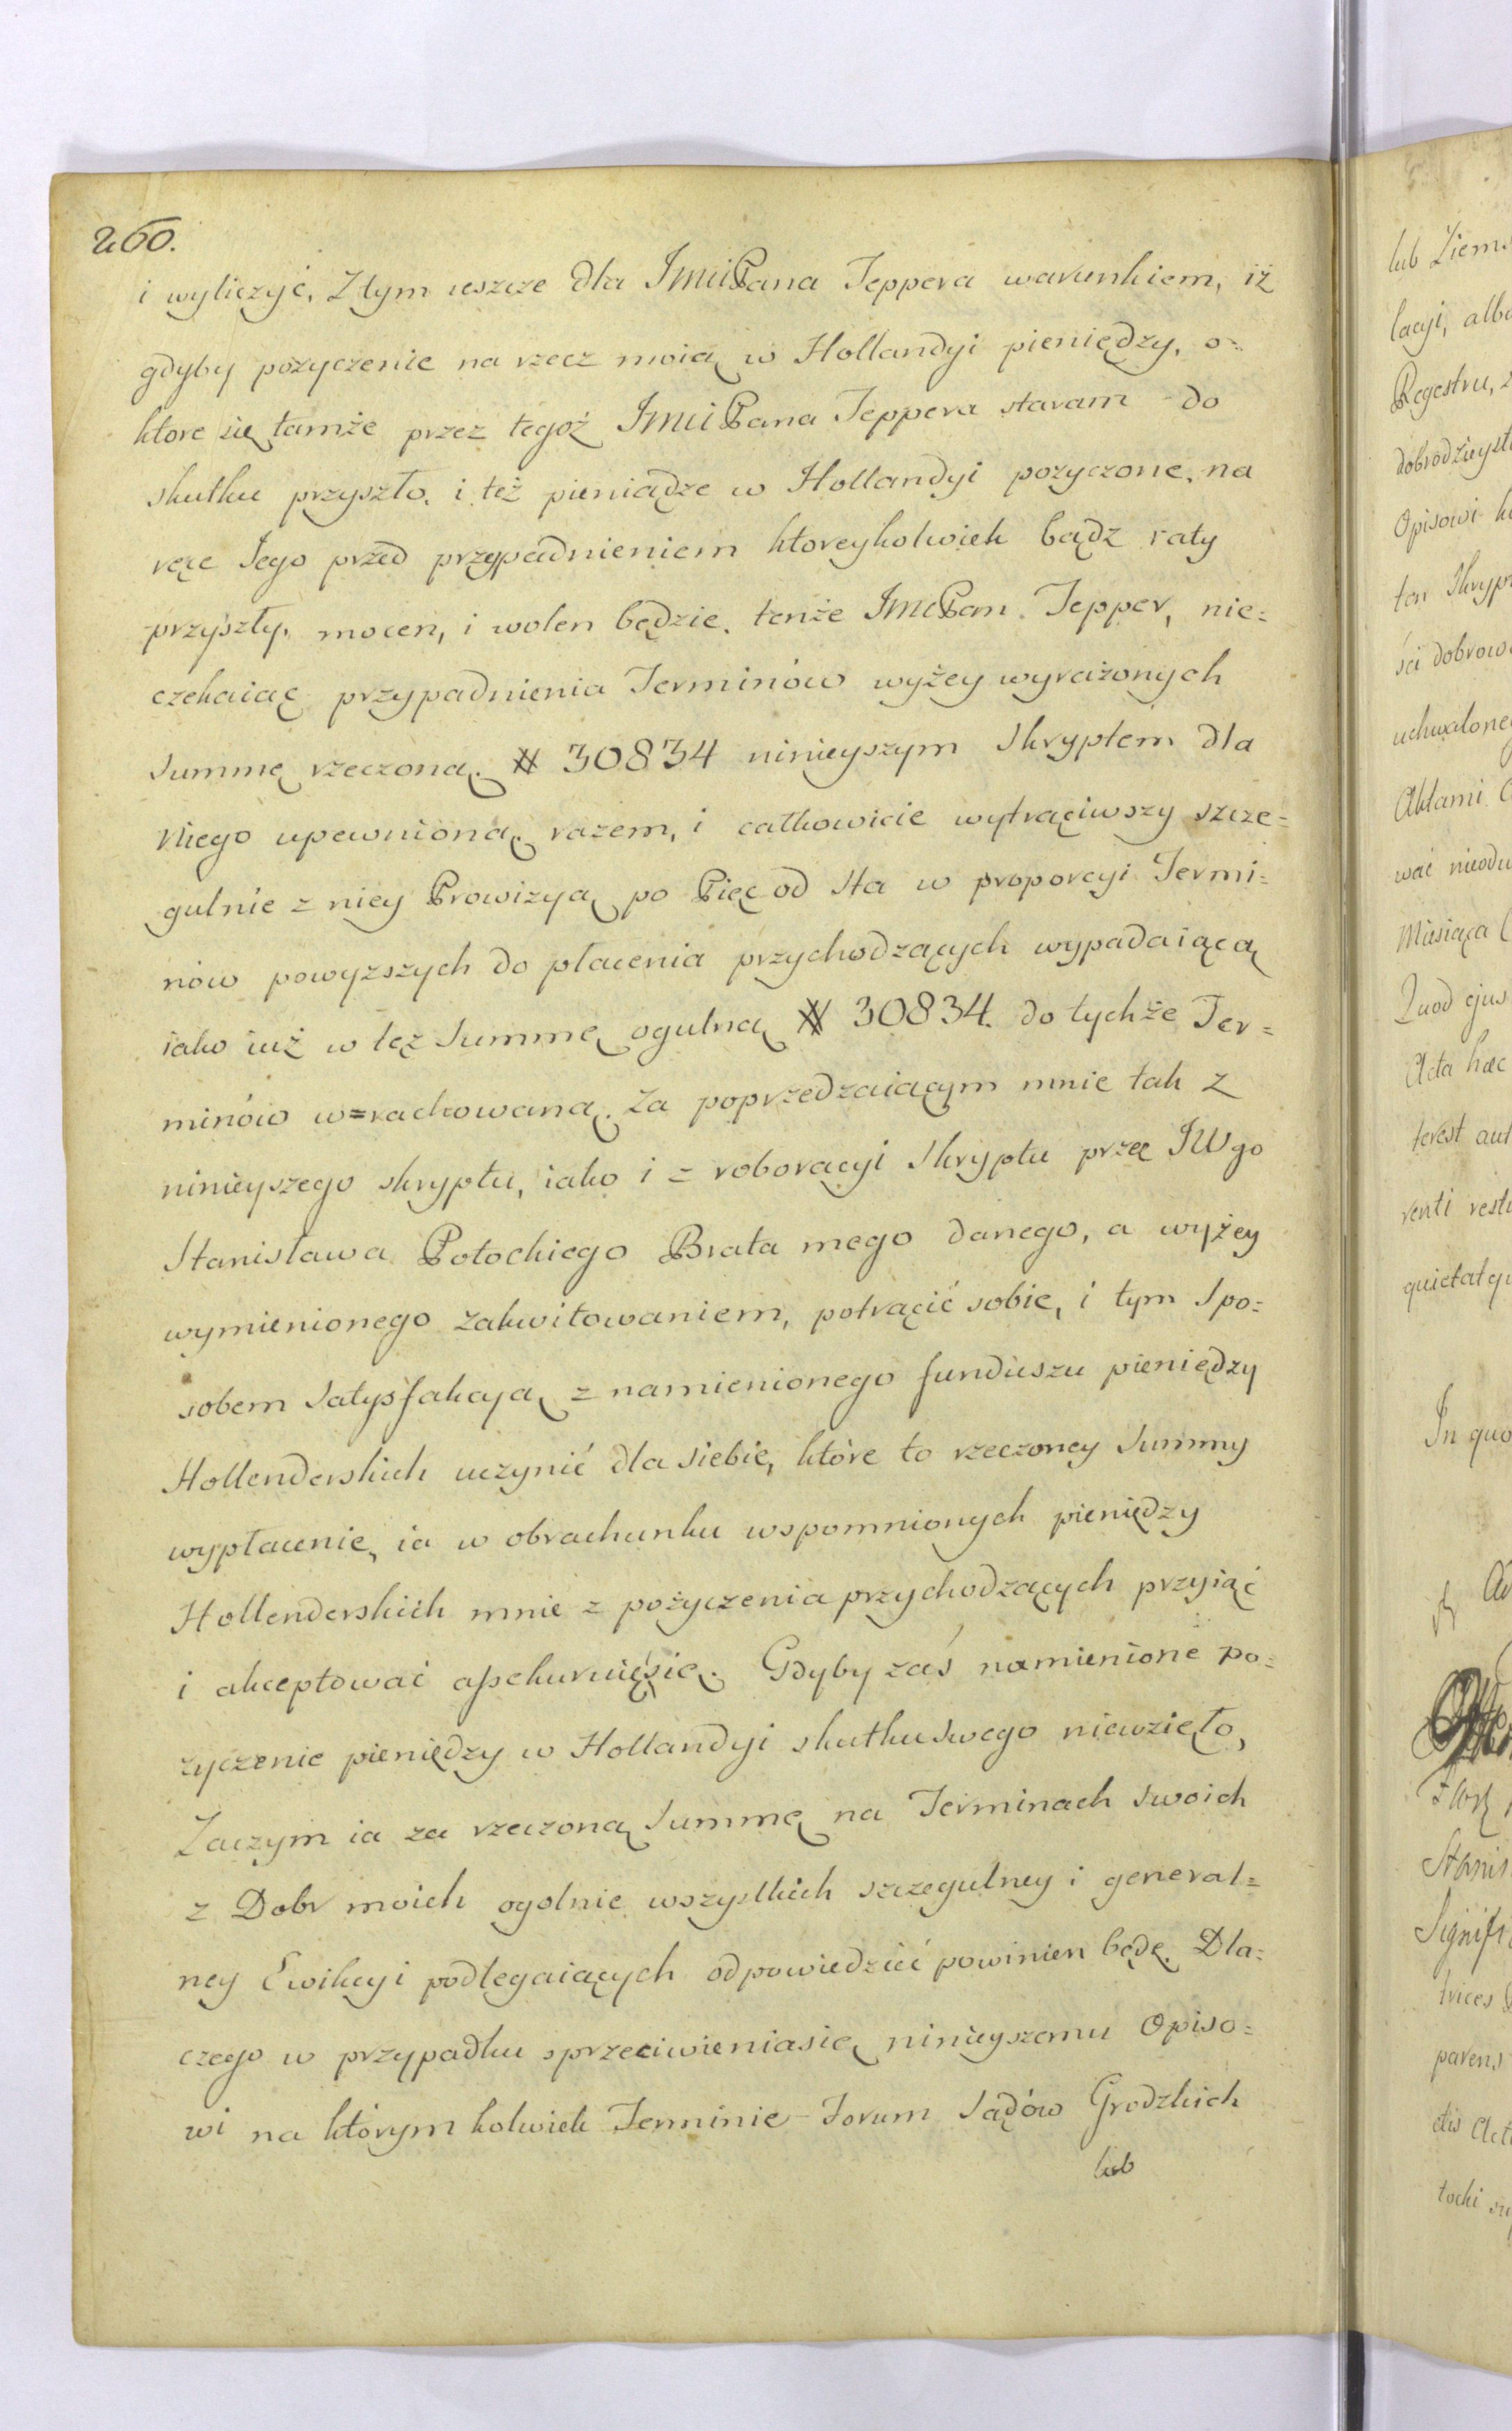 260.
i wyliczyć. Z tym ieszcze dla JmciPana Teppera warunkiem, iż
gdyby pożyczenie na rzecz moią w Hollandyi pieniędzy, o=
ktore się tamże przez tegoż JmciPana Teppera staram do
skutku przyszło, i też pieniądze w Hollandyi pozyczone, na
ręce Jego przed przypadnieniem ktoreykolwiek bądz raty
przyszły, mocen, i wolen będzie, tenże JmcPan Tepper, nie=
czekaiąc przypadnienia Terminów wyżey wyrażonych
Summę rzeczoną # 30834 ninieyszym Skryptem dla
Niego upewnioną razem, i całkowicie wytrąciwszy szcze=
gulnie z niey Prowizyą po Pięc od Sta w proporcyi Termi=
nów powyzszych do płacenia przychodzących wypadaiącą
iako iuż w tęż Summę ogulną # 30834. do tychże Ter=
minów w=rachowaną. Za poprzedzaiącym mnie tak z
ninieyszego skryptu, iako i z roboracyi Skryptu przez JWgo
Stanisława Potockiego Brata mego danego, a wyżey
wymienionego zakwitowaniem, potrącić sobie, i tym Spo=
sobem Satysfakcyą z namienionego funduszu pieniędzy
Hollenderskich uczynić dla Siebie, które to rzeczoney Summy
wypłacenie, ia w obrachunku wspomnionych pieniędzy
Hollenderskich mnie z pożyczenia przychodzących przyiąć
i akceptować assekuruięsię. Gdyby zaś namienione po=
zyczenie pieniędzy w Hollandyi skutkuSwego niewzięło,
Zaczym ia za rzeczoną Summę na Terminach Swoich
z Dobr moich ogolnie wszystkich szczegulney i general=
ney Ewikcyi podlegaiących odpowiedzieć powinien będę. Dla=
czego w przypadku sprzeciwieniasię ninieyszemu Opiso=
wi na którym kolwiek Terminie Forum Sądów Grodzkich
lub
lub Ziems
lacyi, albo
Regestru,
dobrodzieyst
Opisowi
ten Skryp
ści dobrow
uchwalone
Aktami
wać nieodw
Miesiąca
Quod ejus
Acta hæc
terest aut
renti
quietatq
In quo
Stanis
Signif
trices
parens
ctis Act
tocki